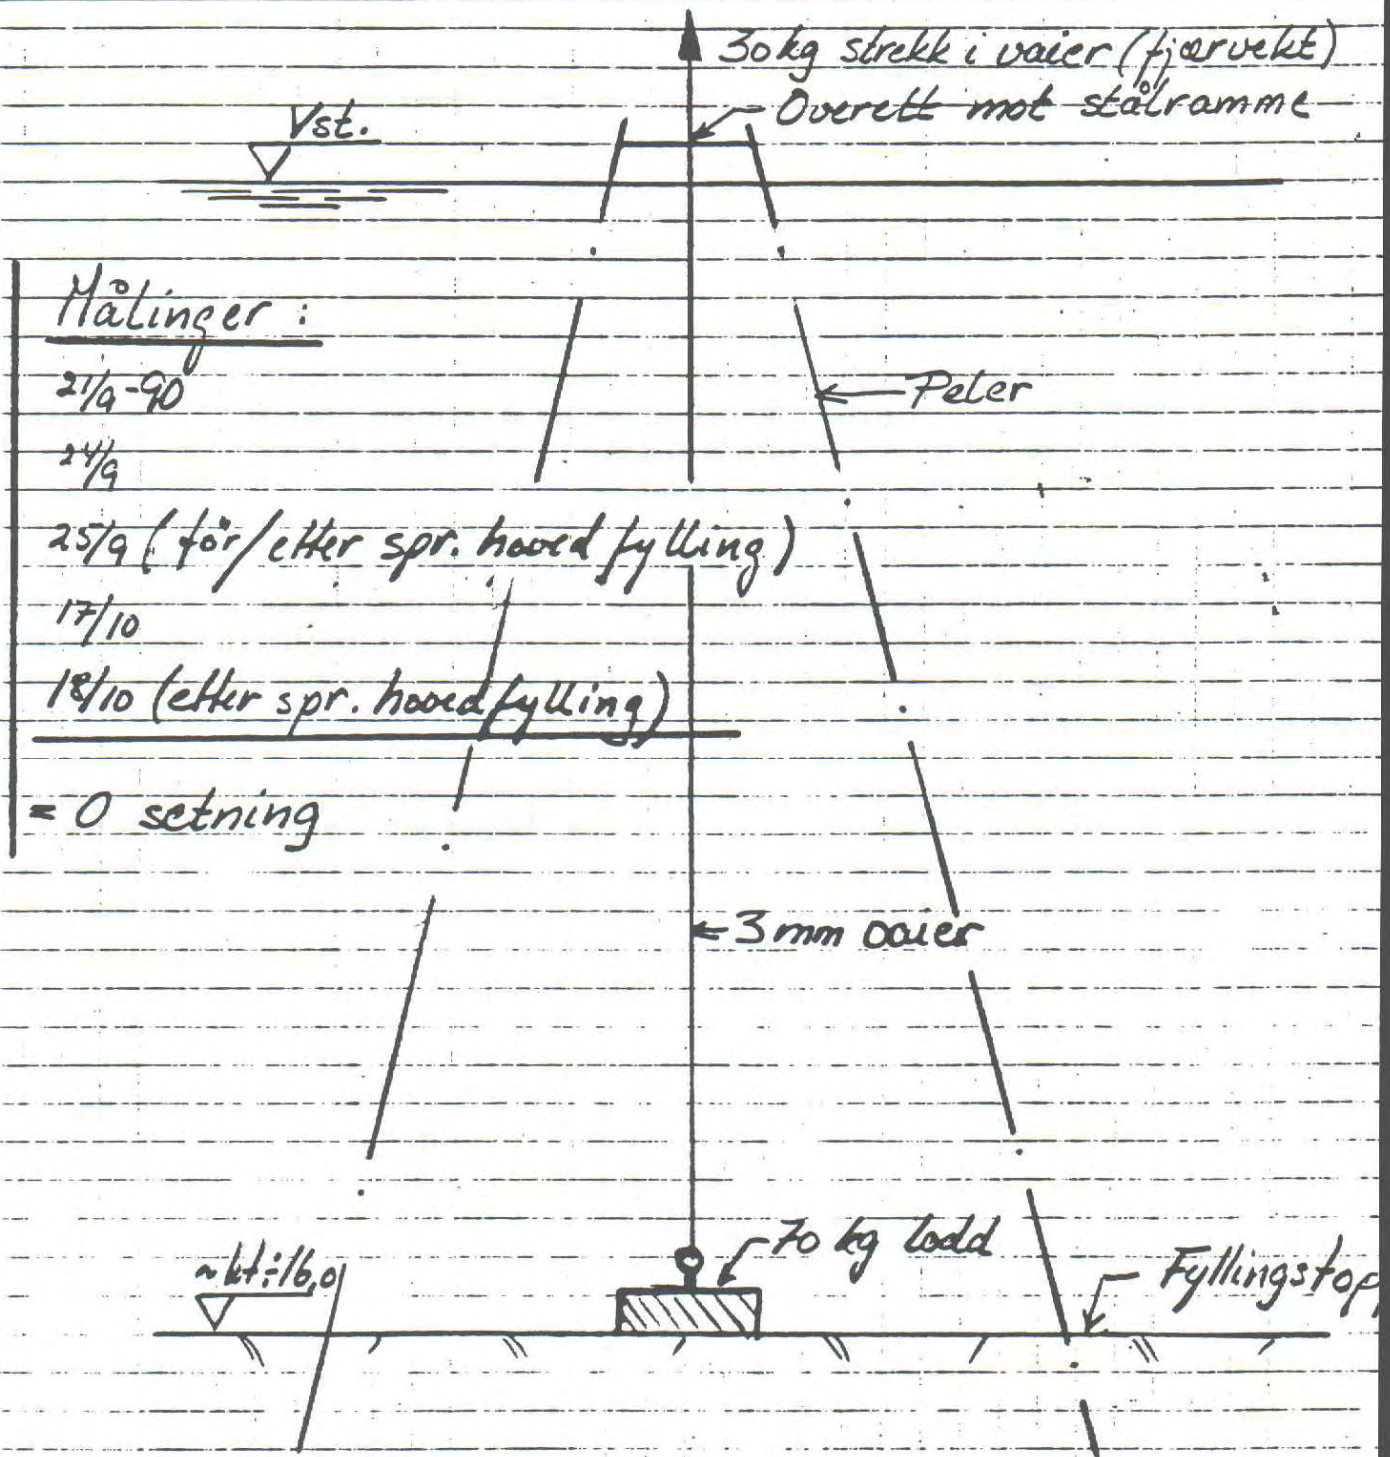 30 kg strekk i vaier (fjærvekt)
Overett mot stålramme
Vst.
Målinger :
21/9-90
Peler
24/9
25/9 (før/etter spr. hovedfylling)
17/10
18/10 (etter spr. hovedfylling)
= 0 setning
3 mm vaier
70 kg lodd
~kt÷16,0
Fyllingstopp